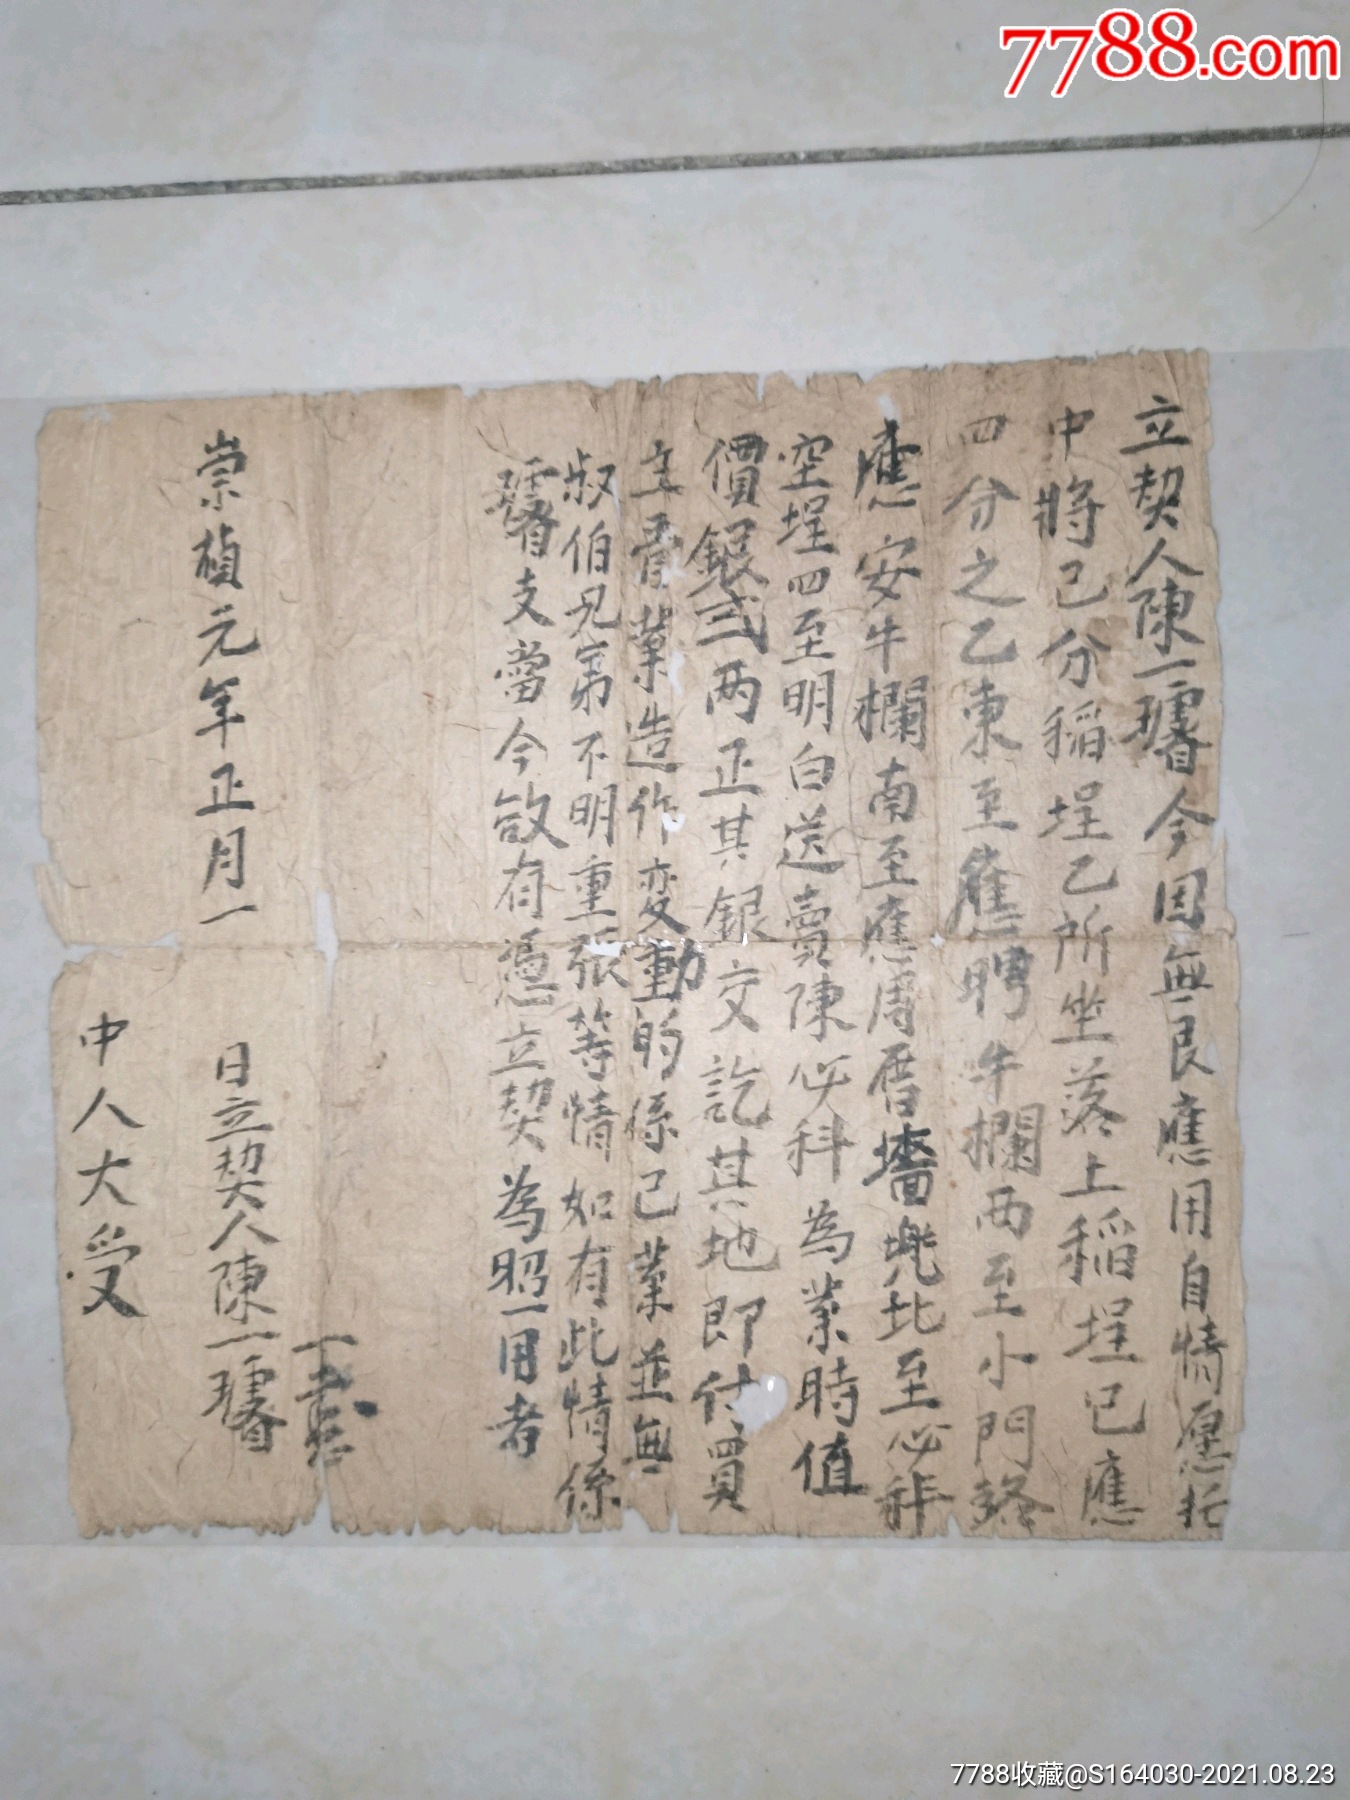 7788.com
立契人陳一璿今因無良應用自情愿托
中將己分稻埕乙所坐落上稻埕已應
四分之乙東至應聘牛欄西至小門路
應安牛欄南至應厝墻兠北至必科
空埕四至明白送賣陳必科為業時值
價銀弍两正其銀交訖其地即付買
主管業造作变動的係己業並無
叔伯兄弟不明重張等情如有此情係
璿支當今欲有憑立契為昭一用者
崇禎元年正月一
日立契人陳一璿
中人大受
7788收藏@S164030-2021.08.23